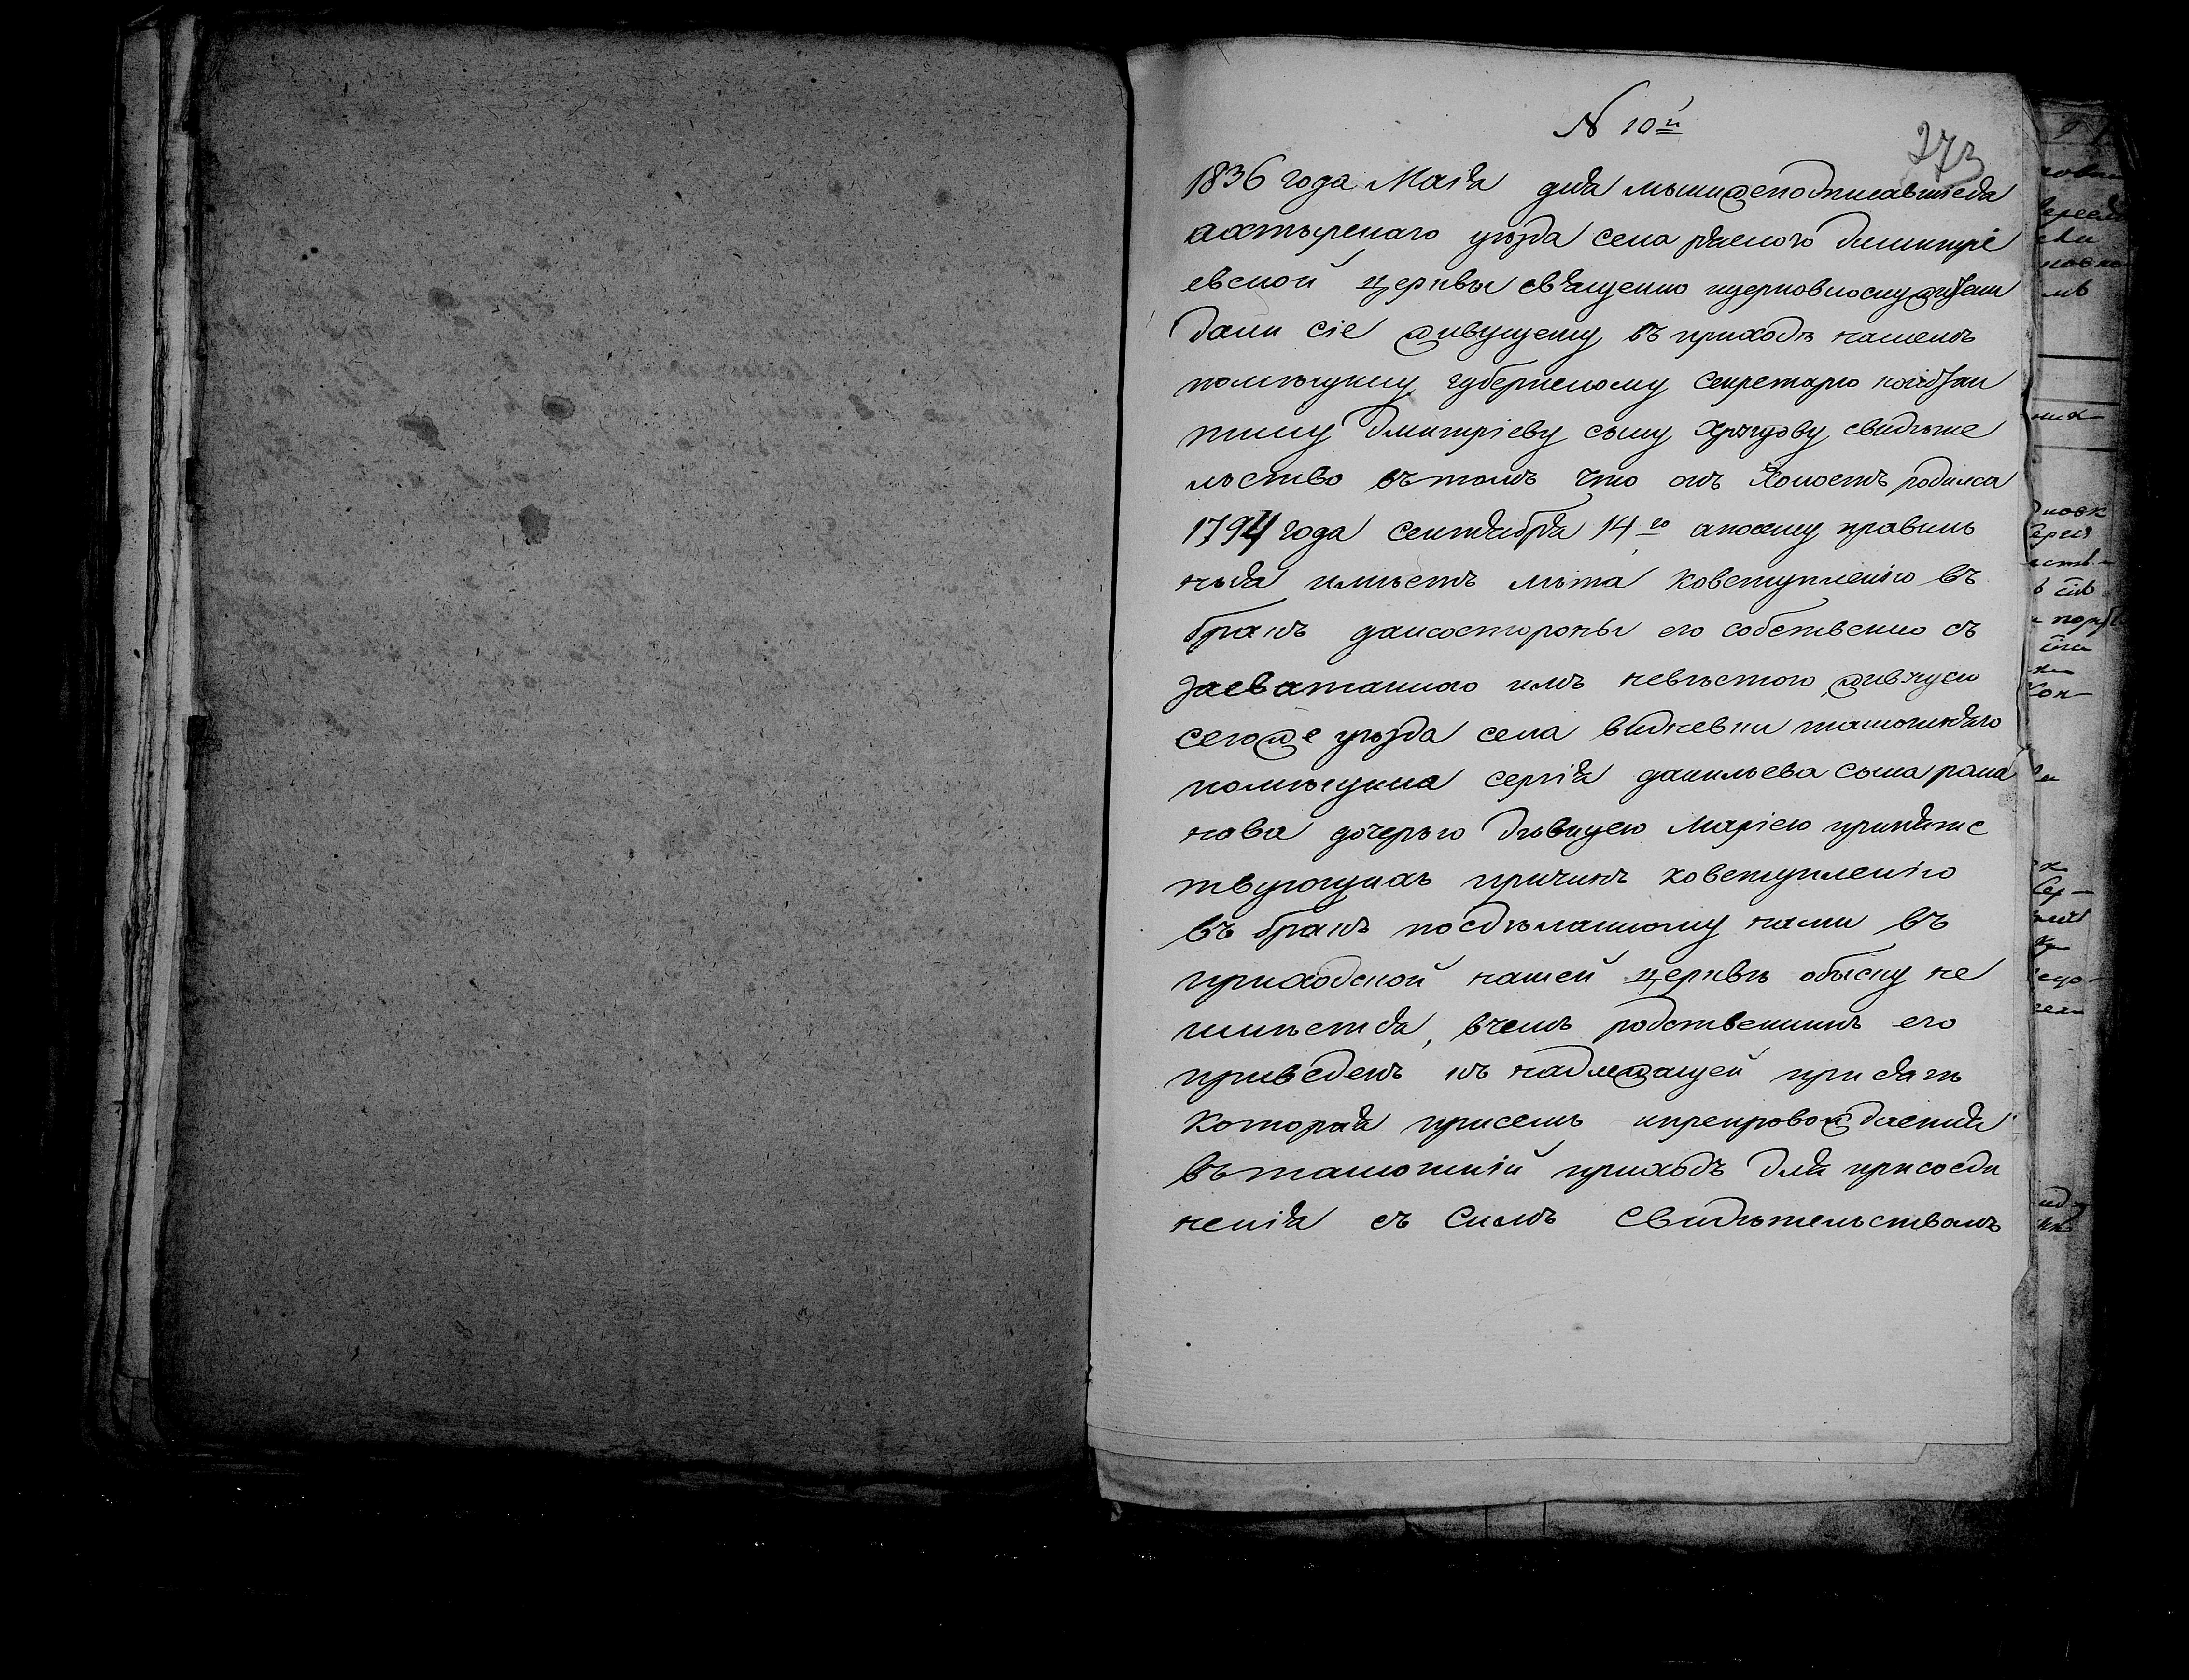 N 10й
273
1836 года Маія дня мынижеподписавшіеся
ахтыренаго уѣзда села рясного димитрі
евской церквы свѧщенно ицерковнослужители
дали сіе живущему въ приходѣ нашемъ
помѣщику губернскому секретарю
Дмитріеву сыну свидѣте
льство вътомъ что онъ Холостъ родился
1794 года сентября 14го апосему правиль
ныя имѣетъ лѣта ковступленію въ
бракъ дансостороны его собственно съ
засватанною имъ невѣстою живущею
сегоже уѣзда села видневки тамошняго
помѣщика сергія данильева сына рома
нова дочерью дѣвицею Маріею припятс
твующихъ причинъ ковступленію
въ бракъ посдѣланному нами въ
приходской нашей церквѣ обыску не
имѣется, вчемъ родственникъ его
приведенъ къ надлежащей присягѣ
Которая присемъ ипрепровождается
въ тамошній приходъ для присоеди
ненія съ Симъ Свидѣтельствомъ